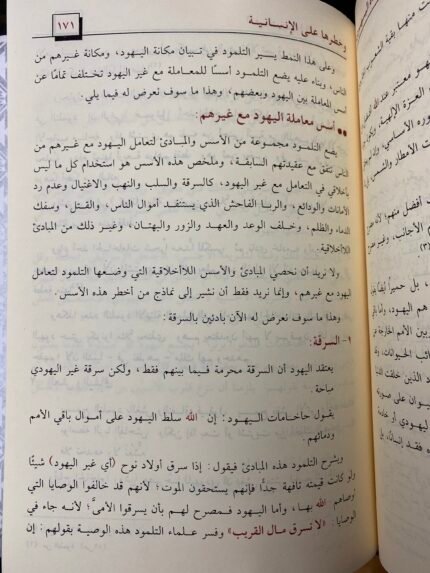 وخطرها على الإنسانية
١٧١
وعلى هذا النمط يسير التلمود في تبيان مكانة اليهود، ومكانة غيرهم من
الناس، وبناء عليه يضع التلمود أسسًا للمعاملة مع غير اليهود تختلف تمامًا عن
أسس المعاملة بين اليهود وبعضهم، وهذا ما سوف نعرض له فيما يلي.
●● أسس معاملة اليهود مع غيرهم:
يضع التلمود مجموعة من الأسس والمبادئ لتعامل اليهود مع غيرهم من
الناس تتفق مع عقيدتهم السابقة، وملخص هذه الأسس هو استخدام كل ما ليس
بأخلاقي في التعامل مع غير اليهود، كالسرقة والسلب والنهب والاغتيال وعدم رد
الأمانات والودائع، والربا الفاحش الذي يستنفد أموال الناس، والقتل، وسفك
الدماء والظلم، وخلف الوعد والعهد والزور والبهتان، وغير ذلك من المبادئ
اللاأخلاقية.
ولا نريد أن نحصي المبادئ والأسس اللاأخلاقية التي وضعها التلمود لتعامل
اليهود مع غيرهم، وإنما نريد فقط أن نشير إلى نماذج من أخطر هذه الأسس.
وهذا ما سوف نعرض له الآن بادئين بالسرقة:
١- السرقة:
يعتقد اليهود أن السرقة محرمة فيما بينهم فقط، ولكن سرقة غير اليهودي
مباحة.
يقول حاخامات اليهود: إن الله سلط اليهود على أموال باقي الأمم
ودمائهم.
ويشرح التلمود هذه المبادئ فيقول: إذا سرق أولاد نوح (أي غير اليهود) شيئًا
ولو كانت قيمته تافهة جدًّا فإنهم يستحقون الموت؛ لأنهم قد خالفوا الوصايا التي
أوصاهم الله بها، وأما اليهود فمصرح لهم بأن يسرقوا الأميَّ؛ لأنه جاء في
الوصايا: «لا تسرق مال القريب» وفسر علماء التلمود هذه الوصية بقولهم: إن